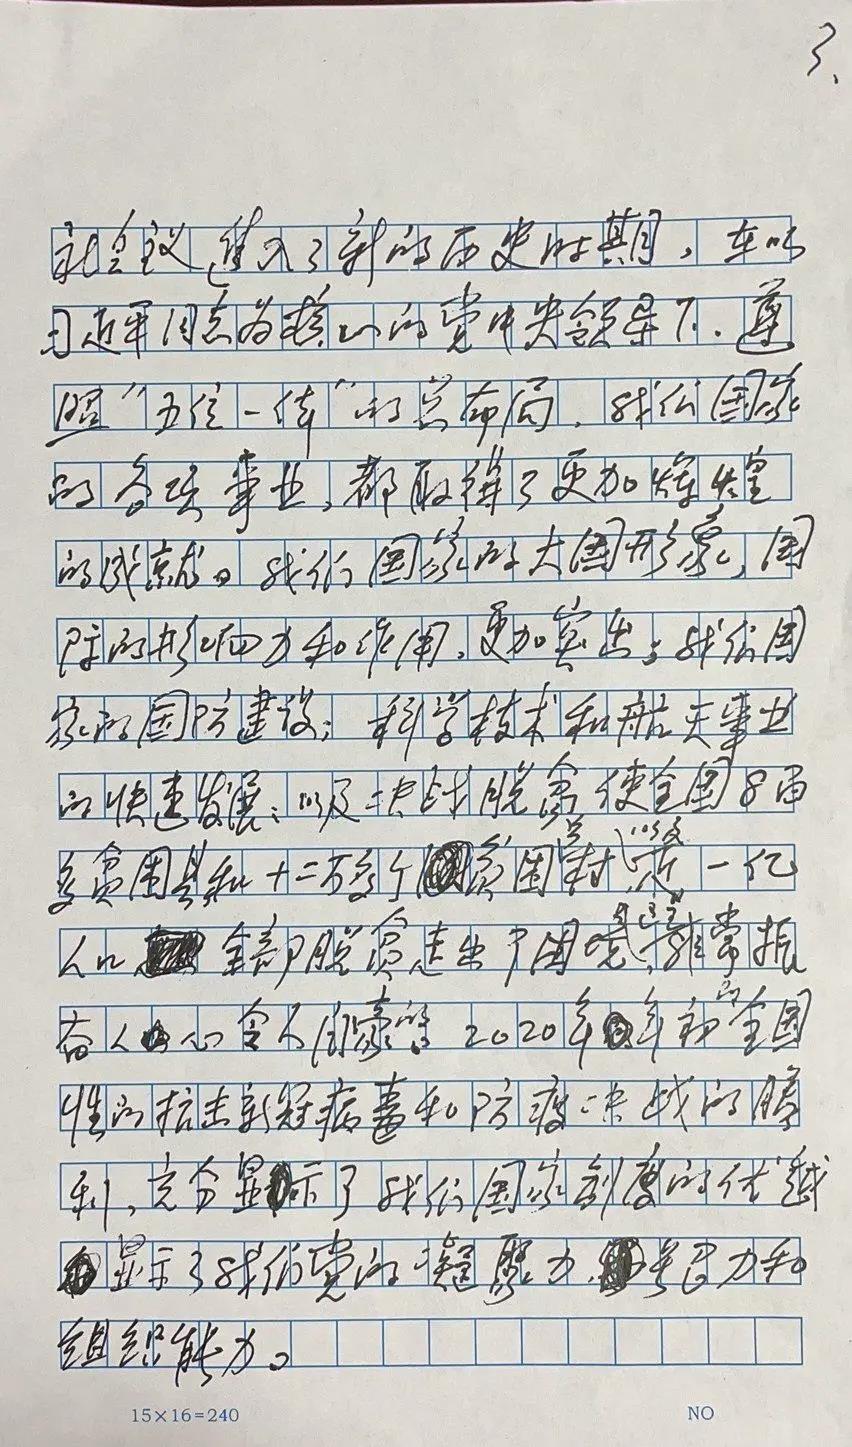 3、
社会主义进入了新的历史时期,在以
习近平同志为核心的党中央领导下,遵
照“五位一体”的总布局,我们国家
的各项事业,都取得了更加辉煌
的成就。我们国家的大国形象,国
际的影响力和作用,更加突出;我们国
家的国防建设;科学技术和航天事业
的快速发展;以及决战脱贫使全国8百
多贫困县和十二万多个贫困村以及近一亿
人口全部脱贫走出了困境,这是非常振
奋人心令人自豪的 2020年年初的全国
性的抗击新冠病毒和防疫决战的胜
利,充分显示了我们国家制度的优越
显示了我们党的凝聚力、号召力和
组织能力。
15×16=240
NO